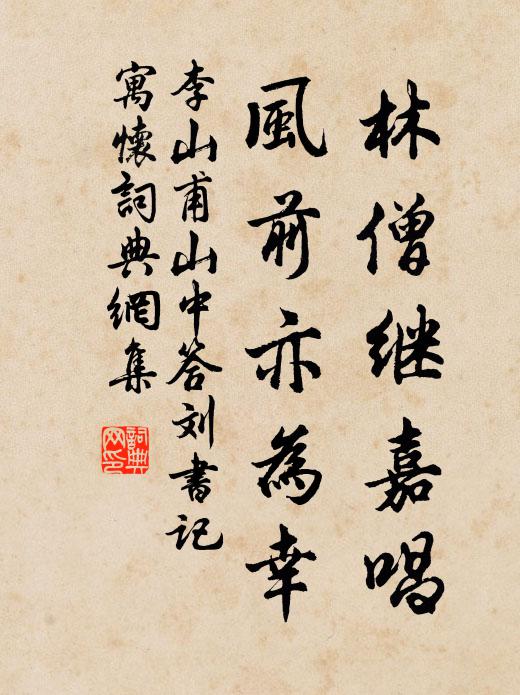 林僧继嘉唱
風前亦為幸
李山甫山中答刘書记
寓懷詞典網集
詞典网印